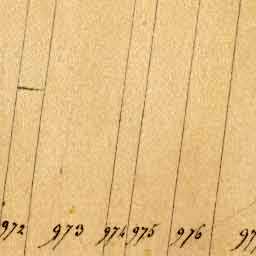 972 973 974 975 976